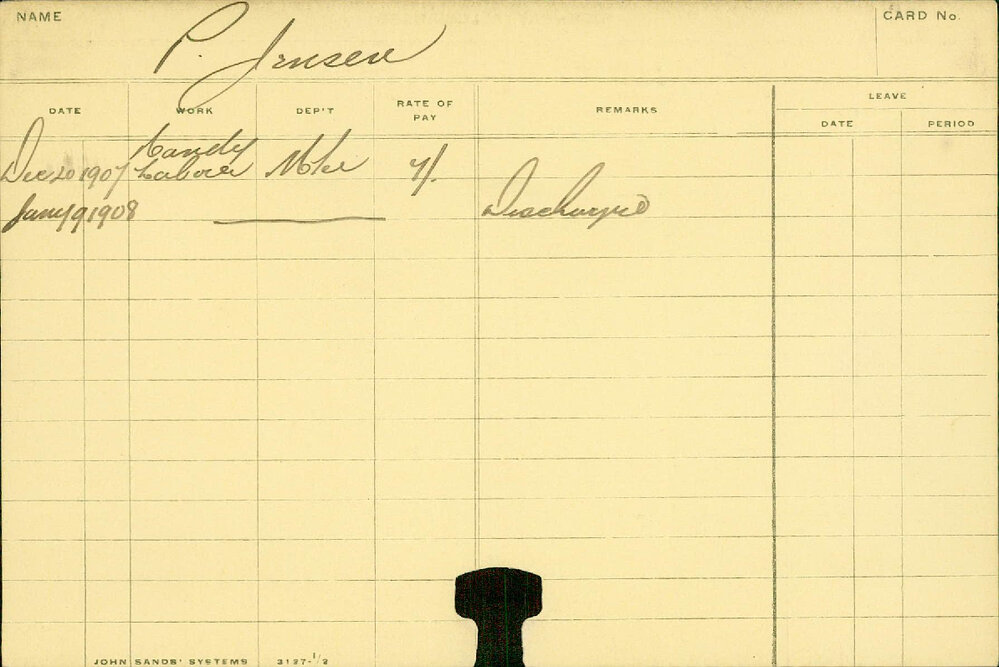 NAME
P. Jensen
CARD No.
DATE WORK DEP'T RATE OF PAY REMARKS LEAVE
DATE PERIOD
Handy
Dec 20 1907 Labourer 7/.
Jany 9 1908 Discharged
JOHN SANDS' SYSTEMS 3127-1/2